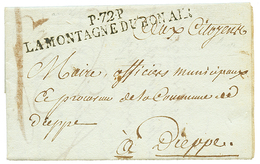 P.72.P
LAMONTAGNE DU BON AIR
Aux Citoyens
Maire, officiers municipaux
et procureur de la Commune de
dieppe
à Dieppe